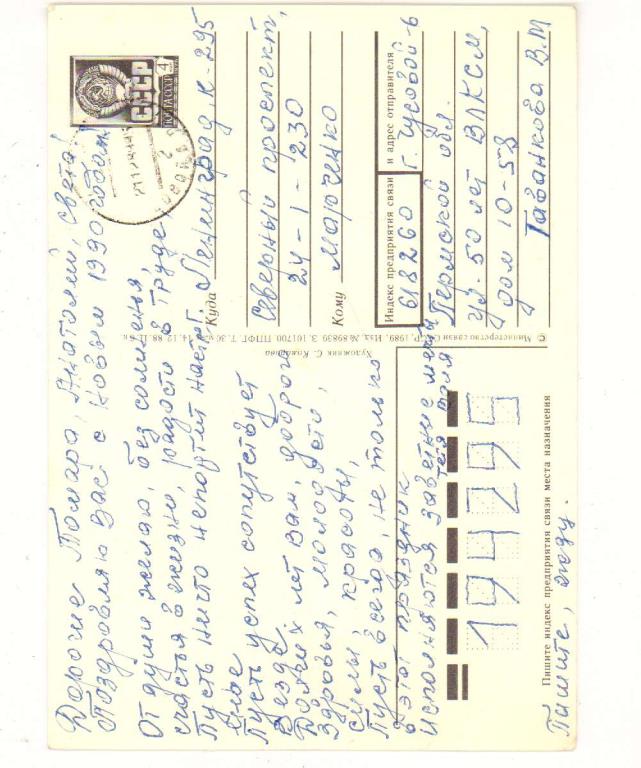 Дорогие Тамара, Анатолий, Света!
Поздравляю Вас с Новым 1990 годом!
От души желаю, без сомненья,
счастья в жизни, радости в труде
Пусть ничто непортит настро
енье
Пусть успех сопутствует
Везде
Долгих лет вам, доброго
здоровья, молодости,
силы, красоты,
Пусть всегда, не только
в этот праздник
Исполняются заветные мечты
тетя Толя
Пишите, жду.
СССР
4
ПОЧТА СССР
Куда Ленинград, К-295
Северный проспект,
24-1-230
Кому Марченко
Индекс предприятия связи и адрес отправителя
618260 г. Чусовой-6
Пермской обл.
ул. 50 лет ВЛКСМ,
дом 10-58
Габанкова В.М
© Министерство связи СССР, 1989. Изд. № 89839. З. 101700 ППФГ.
Художник С.
194295
Пишите индекс предприятия связи места назначения